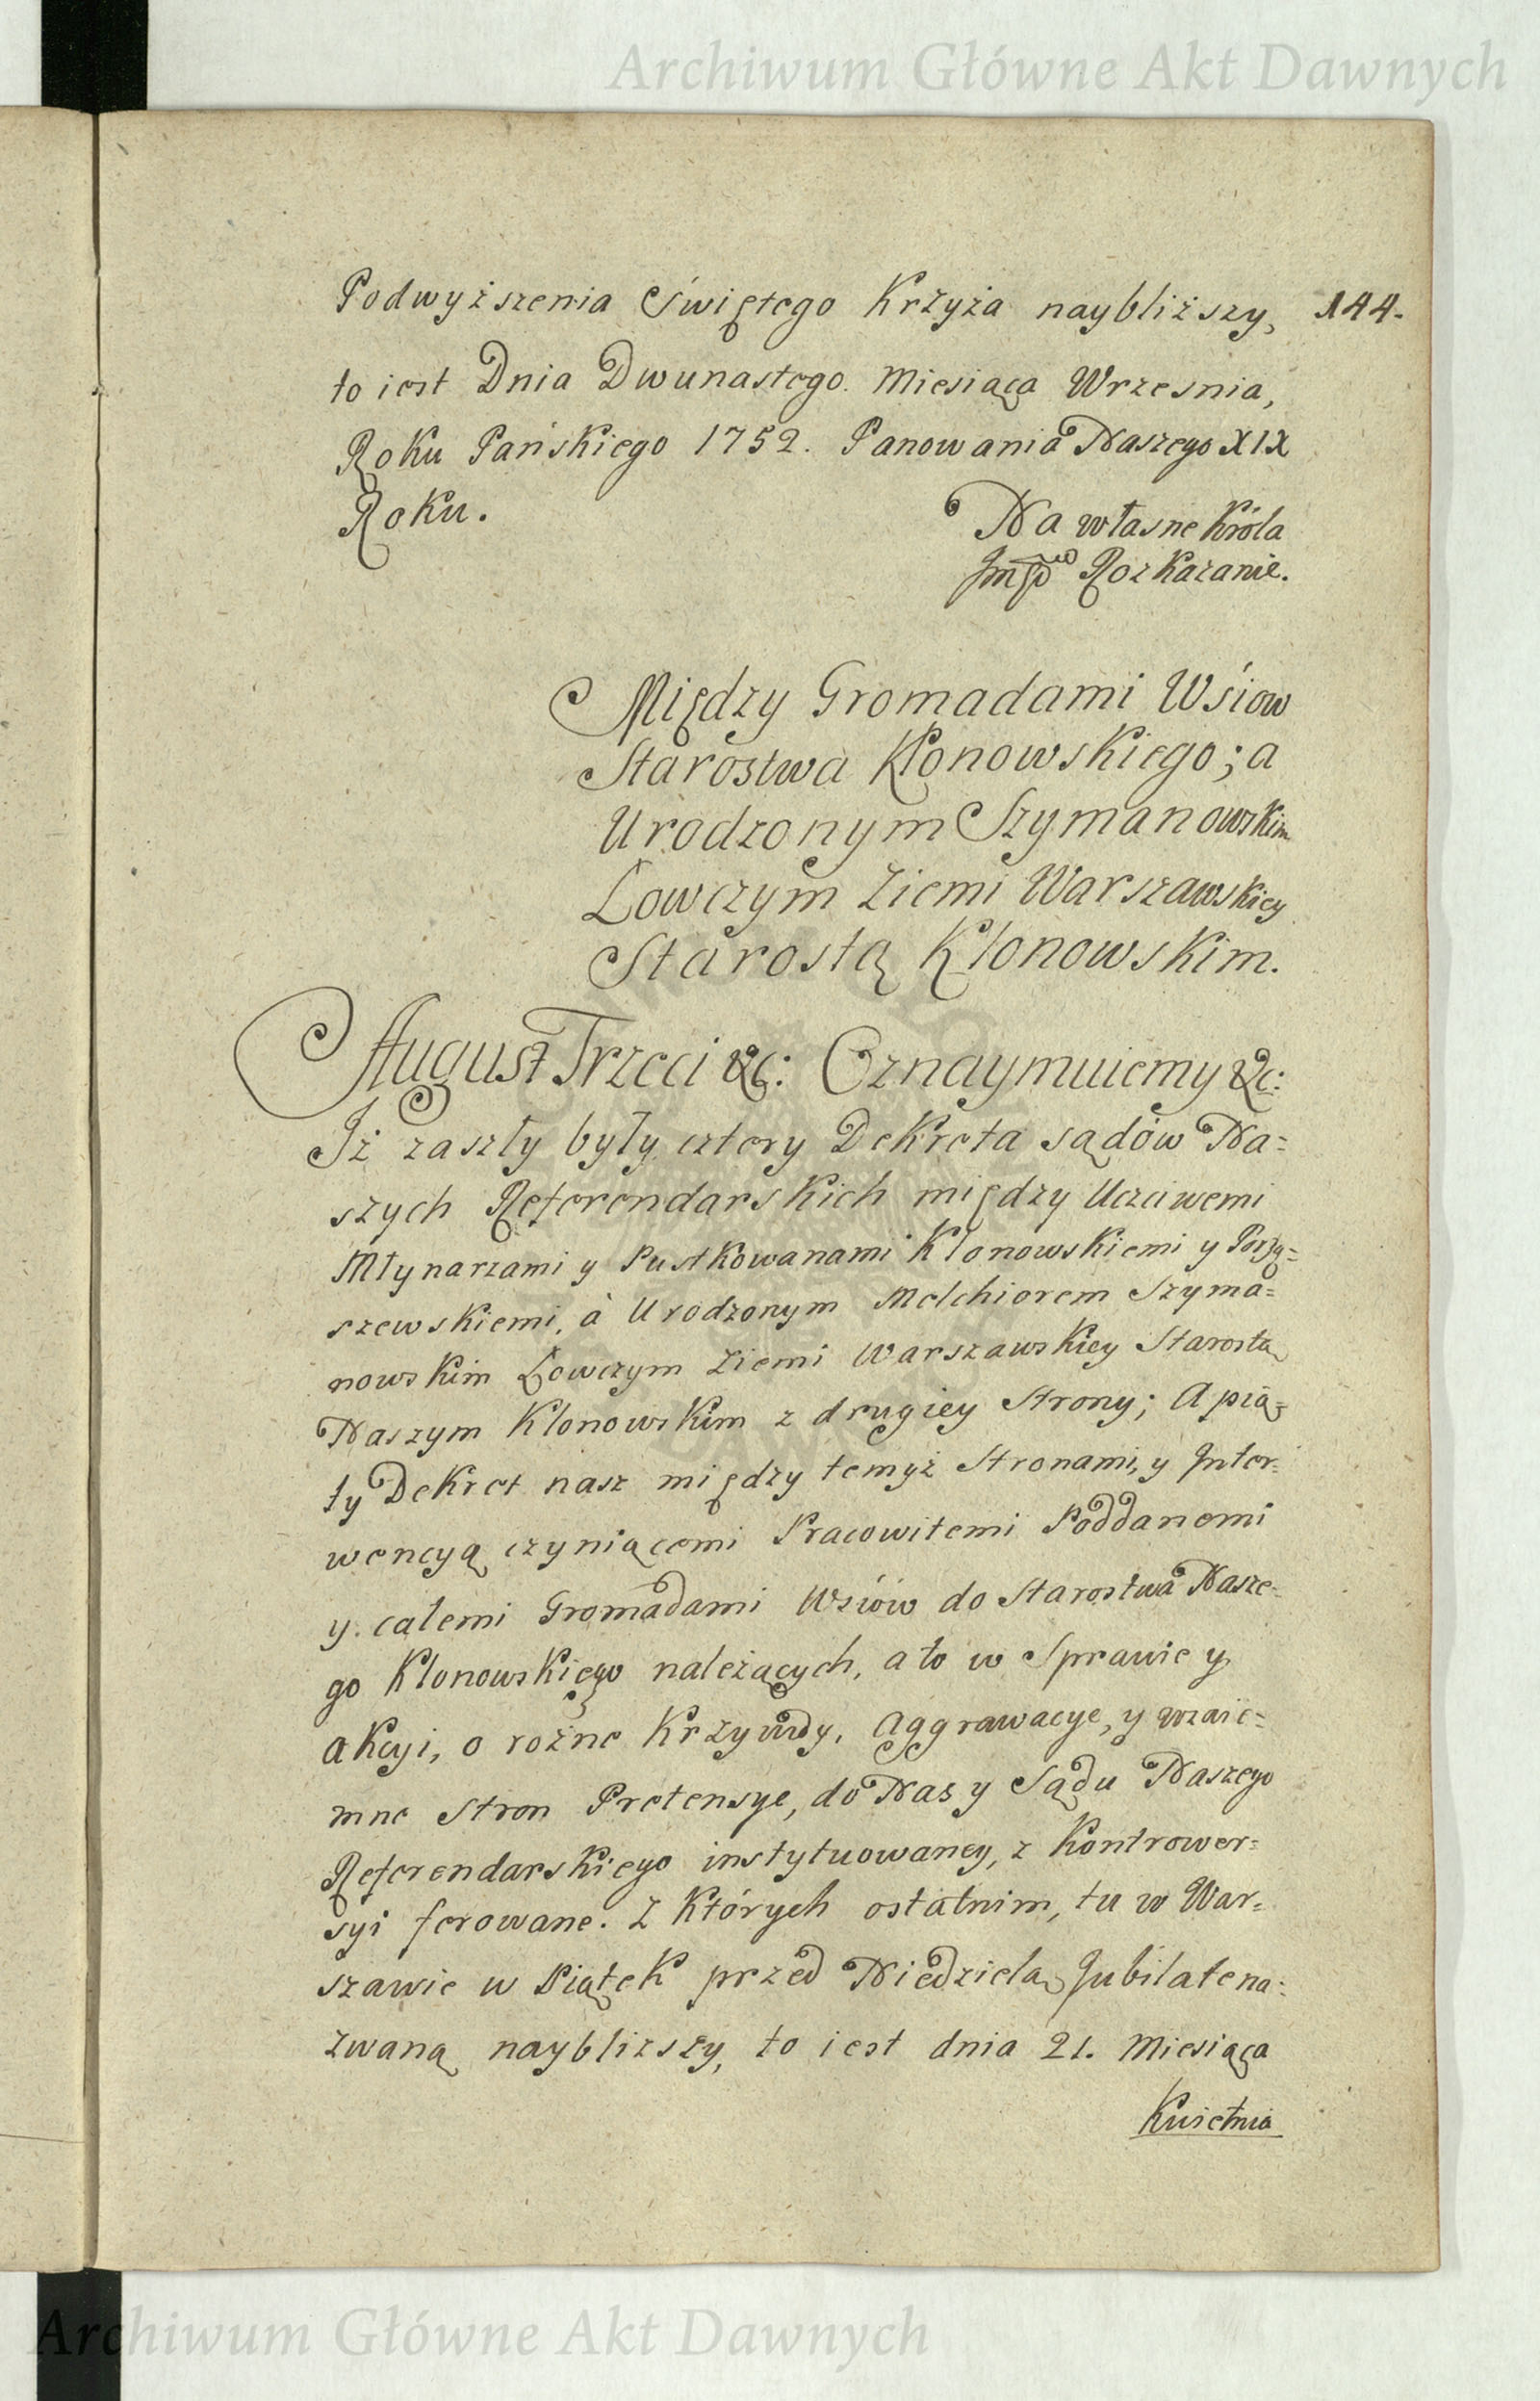 Archiwum Główne Akt Dawnych
Podwyższenia Świętego Krzyża naybliższy, 144.
to iest Dnia Dwunastego. Miesiąca Wrzesnia,
Roku Pańskiego 1752. Panowania Naszego XIX
Roku.
Na własne Króla
Rozkazanie.
Między Gromadami Wśiow
Starostwa Kłonowskiego; a
Urodzonym Szymanowskim
Łowczym Ziemi Warszawskiey
Starostą Klonowskim.
August Trzeci &c: Oznaymuiemy &c:
Iż zaszły były cztery Dekreta sądów Na=
szych Referendarskich między Uczciwemi
Młynarzami y Pustkowanami Klonowskiemi y
szewskiemi, à Urodzonym Melchiorem Szyma=
nowskim Łowczym Ziemi Warszawskiey Starostą
Naszym Klonowskim z drugiey Strony; A pią=
ty Dekret nasz między temyż Stronami, y Inter=
wencyą czyniącemi Pracowitemi Poddanemi
y. całemi Gromadami Wsiów do Starostwa Nasze=
go Klonowskiego należących, a to w Sprawie y
akcyi, o rożne Krzywdy, Aggrawacye, y wzaie=
mne Stron Pretensye, do Nas y Sądu Naszego
Referendarskiego instytuowaney, z Kontrower=
syi ferowane. Z Których ostatnim, tu w War=
szawie w Piątek przed Niedzielą Jubilate na=
zwaną naybliższy, to iest dnia 21. Miesiąca
Kwietnia
Archiwum Główne Akt Dawnych